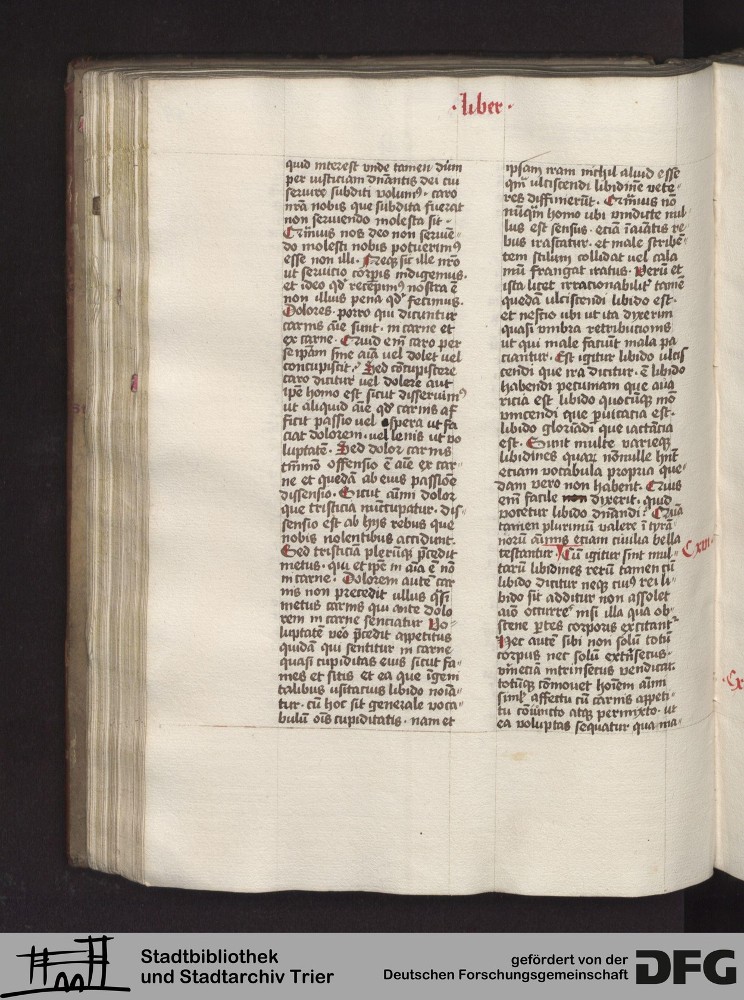 ·liber·
quid interest vnde tamen dum
per iusticiam dnāntis dei cui
seruire subditi volumꝰ · caro
nr̄a nobis que subdita fuerat
non seruiendo molesta sit ·
Qr̄muis nos deo non seruiē-
do molesti nobis potuerimꝰ
esse non illi · Neqꝫ sic ille nr̄o
ut seruicio corpis indigemus ·
et ideo qd' recepimꝰ nostra ē
non illius pena qd' fecimus ·
Dolores · porro qui dicuntur
carnis aīe sunt · in carne et
ex carne · Quid em̄ caro per
seipsam sine aīa vel dolet vel
concupiscit · Sed cōcupiscere
caro dicitur vel dolere aut
ip̄e homo est sicut disseruimꝰ
ut aliquid aīe qd' carnis af
ficit passio uel aspera ut fa
ciat dolorem · uel lenis ut vo
luptatē · Sed dolor carnis
tm̄mō offensio ē aīe ex car-
ne et quedā ab eius passiōe
dissensio · Sicut animi dolor
que tristicia nūcupatur · dis-
sensio est ab hijs rebus que
nobis nolentibus accidunt ·
Sed tristiciā plerūqꝫ p̄cedit
metus · qui et ip̄e in aīa ē nō
in carne · Dolorem autē car
nis non precedit ullus q̄si
metus carnis qui ante dolo
rem in carne senciatur Vo-
luptatē vēo p̄cedit appetitus
quidā qui sentitur in carne
quasi cupiditas eius sicut fa-
mes et sitis et ea que ī geni
talibus usitacius libido noīa-
tur · cū hoc sit generale voca-
bulū oīs cupiditatis · nam et
ipsam iram nichil aliud esse
qm̄ ulciscendi libidinē vete-
res diffinierūt · Qr̄muis nō
nūqm̄ homo ubi vindicte nul-
lus est sensus · eciā īaīatis re-
bus irascatur · et male scribē-
tem stilum collidat uel cala
mū frangat iratus · Verū et
ista licet irrationabilir̄ tamē
quedā ulciscendi libido est ·
et nescio ubi ut ita dyxerim
quasi vmbra retributionis
ut qui male faciūt mala pa
ciantur · Est igitur libido ulcis
cendi que ira dicitur · ē libido
habendi pecuniam que aua
ricia est libido quocūqꝫ mō
vincendi que puicacia est ·
libido gloriādi que iactācia
est · Sunt multe varieqꝫ
libidines quaꝝ nōnulle hn̄t
eciam vocabula propria que-
dam vero non habent · Quis
em̄ facile non dyxerit · quid
vocetur libido dn̄andi · Quā
tamen plurimū valere ī tyrā-
norū aīmis eciam ciuilia bella
testantur · Cū igitur sint mul-
tarū libidines rerū tamen cū
libido dicitur neqꝫ cuiꝰ rei li-
bido sit additur non assolet
aīo occurre' nisi illa qua ob-
scene ꝑtes corporis excitant
Hec autē sibi non solū totū
corpus nec solū extr̄secus ·
vm̄eciām intrinsecus vendicat
totūqꝫ cōmouet hoīem aīmi
siml' affectu cū carnis appeti-
tu cōiuncto atqꝫ permixto · ut
ea voluptas sequatur qua ma-
C xvi
Cx
Stadtbibliothek
und Stadtarchiv Trier
gefördert von der
Deutschen Forschungsgemeinschaft
DFG